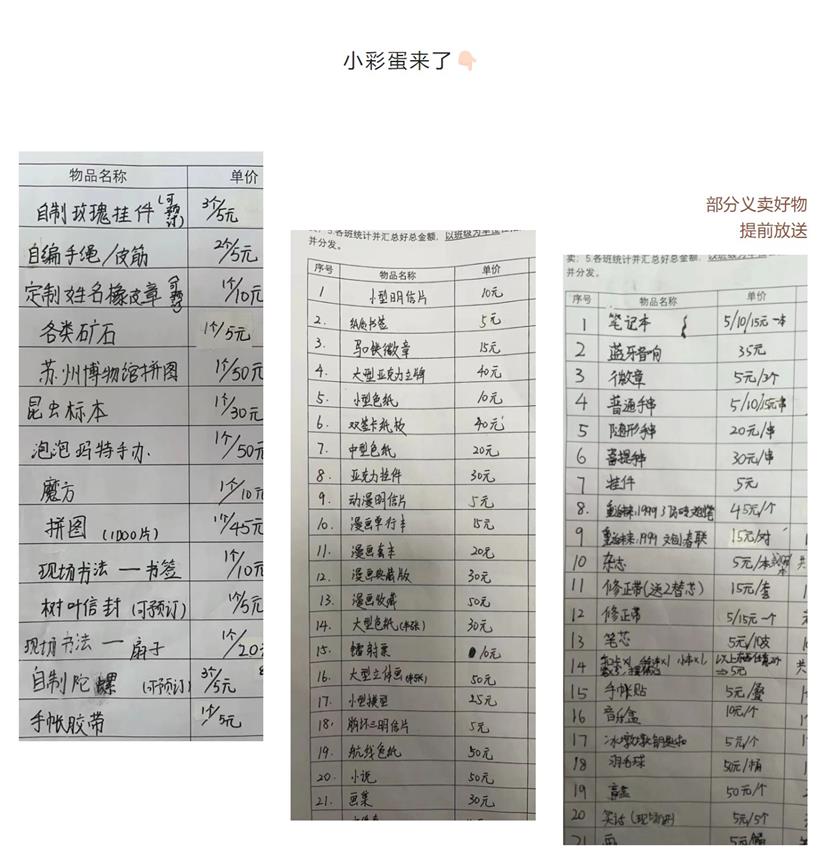 小彩蛋来了👇🏻
部分义卖好物
提前放送
物品名称 单价
自制玫瑰挂件(可预订) 3个/5元
自编手绳/皮筋 2个/5元
定制姓名橡皮章(可预订) 1个/10元
各类矿石 1个/5元
苏州博物馆拼图 1个/50元
昆虫标本 1个/30元
泡泡玛特手办 1个/50元
魔方 1个/10元
拼图(1000片) 1个/45元
现场书法—书签 1个/10元
树叶信封(可预订) 1个/5元
现场书法—扇子 1个/20
自制陀螺(可预订) 3个/5元
手帐胶带 1个/5元
卖;5.各班统计并汇总好总金额,以班级为单位
并分发。
序号 物品名称 单价
1 小型明信片 10元
2. 纸质书签 5元
3. 马口铁徽章 15元
4. 大型亚克力立牌 40元
5. 小型色纸 10元
6. 双签卡纸板 40元
7. 中型色纸 20元
8. 亚克力挂件 30元
9. 动漫明信片 5元
10. 漫画单行本 15元
11. 漫画套本 20元
12. 漫画典藏版 30元
13. 漫画收藏 50元
14. 大型色纸 30元
15. 镭射票 10元
16. 大型立体画 50元
17. 小型模型 25元
18. 崩坏三明信片 5元
19. 航线色纸 50元
20. 小说 50元
21. 画集 30元
卖;5.各班统计并汇总好总金额,以班级为单位
并分发。
序号 物品名称 单价
1 笔记本 5/10/15元一本
2 蓝牙音响 35元
3 徽章 5元/2个
4 普通手串 5/10/15元串
5 随形手串 20元/串
6 菩提手串 30元/串
7 挂件 5元
8. 重返未来:1999 45元/个
9 重返未来:1999 文创春联 15元/对
10 杂志 5元/本 共
11 修正带(送2替芯) 15元/套
12 修正带 5/15元一个
13 笔芯 5元/10支
14 共
15 手帐贴 5元/叠
16 音乐盒 10元/个
17 冰墩墩钥匙扣 5元/个
18 羽毛球 50元/桶
19 盲盒 50元/个
20 笑话 5元/5个
21